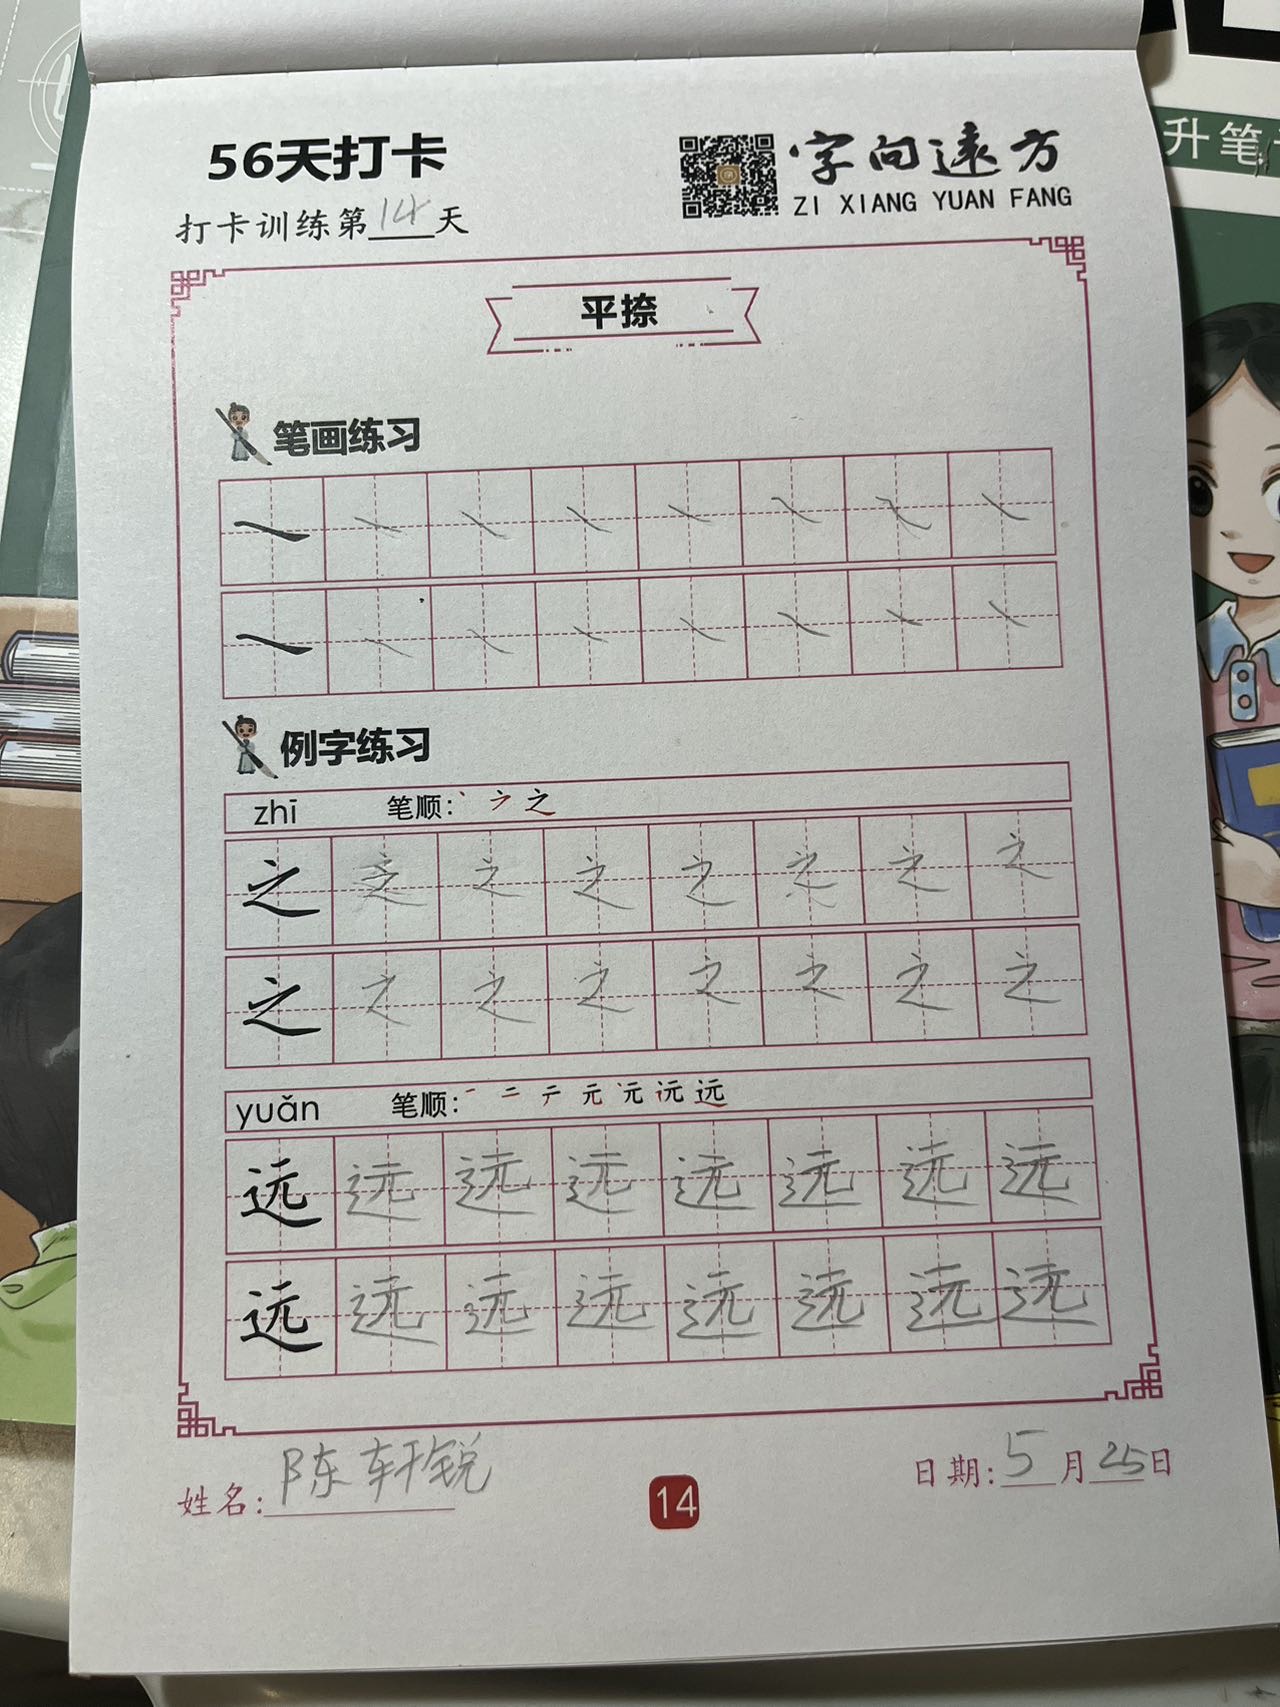 56天打卡
字向遠方
ZI XIANG YUAN FANG
打卡训练第14天
升笔
平捺
笔画练习
例字练习
zhī 笔顺: 丶 ㇇ 之
之 之 之 之 之 之 之 之
之 之 之 之 之 之 之 之
yuǎn 笔顺: 一 二 テ 元 元 沅 远
远 远 远 远 远 远 远 远
远 远 远 远 远 远 远 远
姓名: 陈轩锐
14
日期: 5月25日